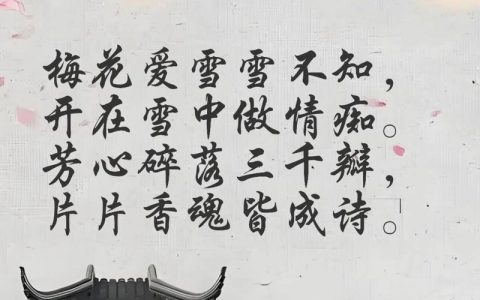 梅花爱雪雪不知，
开在雪中做情痴。
芳心碎落三千瓣，
片片香魂皆成诗。